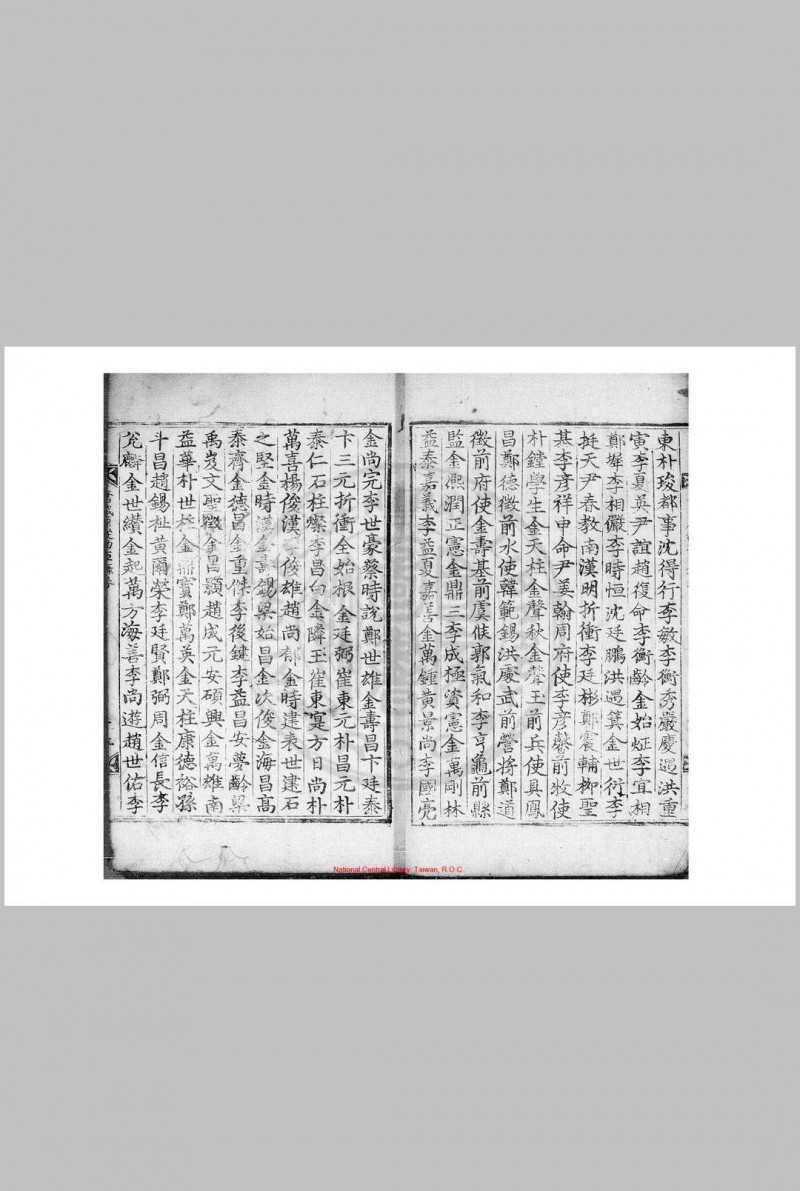 東朴璿都事沈得行李敏李衡秀嚴慶遇洪重
寅李夏英尹誼趙復命李衡齡金始炡李宜相
鄭墀李相儼李時恒沈廷鵬洪遇箕金世衍李
挺天尹春教南漢明折衝李廷彬鄭震輔柳聖
基李彦祥申命尹羙翰周府使李彦馨前牧使
朴鏜學生金天柱金聲秋金聲玉前兵使具鳳
昌鄭德徵前水使韓範錫洪慶武前營將鄭道
徵前府使金壽基前虞候郭氣和李亨龜前縣
監金熈潤正憲金鼎三李成極資憲金萬剛林
益泰嘉義李益夏嘉善金萬鍾黃景尚李國亮
金尚完李世豪蔡時說鄭世雄金壽昌卞廷泰
卞三元折衝全始根金廷弼崔東元朴昌元朴
泰仁石柱燦李昌白金隣玉崔東寔方日尚朴
萬喜楊俊漢俊雄趙尚郁金時建表世建石
之堅金時漢金壽錫梁始昌金次俊金海昌高
泰齊金德昌金重傑李後鍵李益昌安夢齡梁
禹岌文聖徵金昌顥趙成元安碩興金萬雄南
益華朴世柱金鼎寳鄭萬英金天柱康德裕孫
斗昌趙錫祉黃爾榮李廷賢鄭弼周金信長李
光麟金世纘金起萬方海善李尚遊趙世佑李
National Central Library, Taiwan, R.O.C.